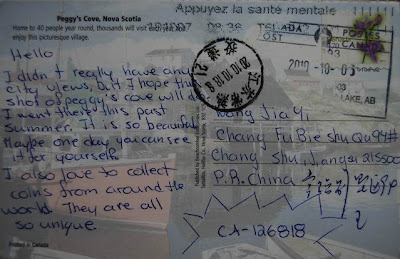 Appuyez la santé mentale
Peggy's Cove, Nova Scotia
Home to 40 people year round, thousands will visit
enjoy this picturesque village.
CANADA
POST
POSTES
CANADA
2010-10-03
LAKE, AB
2010.10.19.8
Hello,
I didn't really have any
city views, but I hope this
shot of peggy's cove will do.
I went there this past
summer. It is so beautiful
Maybe one day you can see
it for yourself.
I also love to collect
coins from around the
world. They are all
so unique.
Wang Jia Yi
Chang Fu Bie Shu Qu 94#
Chang Shu, Jiangsu
P.R. China
CA-126818
Printed in Canada